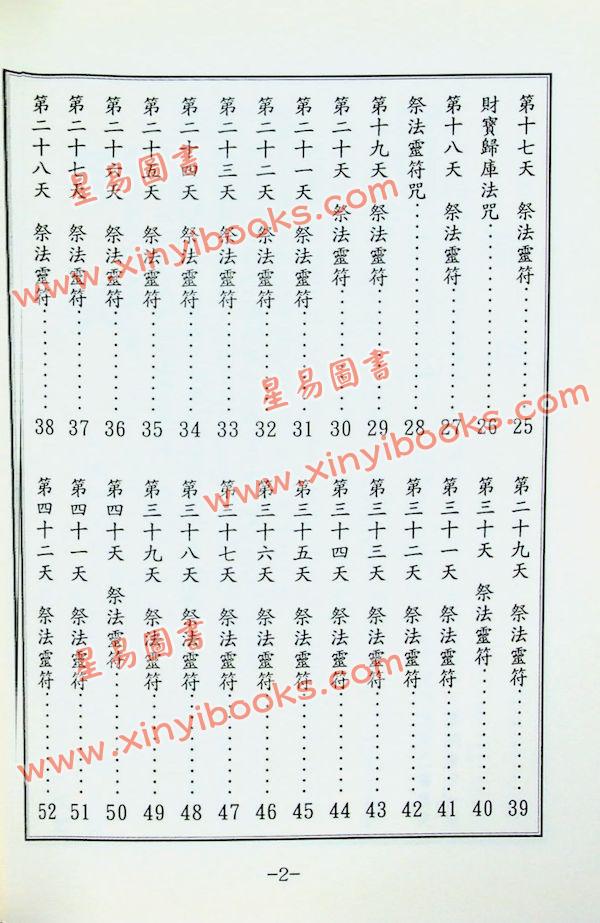 第十七天 祭法靈符‥‥‥‥‥25
財寶歸庫法咒‥‥‥‥‥26
第十八天 祭法靈符‥‥‥‥‥27
祭法靈符咒‥‥‥‥‥28
第十九天 祭法靈符‥‥‥‥‥29
第二十天 祭法靈符‥‥‥‥‥30
第二十一天 祭法靈符‥‥‥‥‥31
第二十二天 祭法靈符‥‥‥‥‥32
第二十三天 祭法靈符‥‥‥‥‥33
第二十四天 祭法靈符‥‥‥‥‥34
第二十五天 祭法靈符‥‥‥‥‥35
第二十六天 祭法靈符‥‥‥‥‥36
第二十七天 祭法靈符‥‥‥‥‥37
第二十八天 祭法靈符‥‥‥‥‥38
第二十九天 祭法靈符‥‥‥‥‥39
第三十天 祭法靈符‥‥‥‥‥40
第三十一天 祭法靈符‥‥‥‥‥41
第三十二天 祭法靈符‥‥‥‥‥42
第三十三天 祭法靈符‥‥‥‥‥43
第三十四天 祭法靈符‥‥‥‥‥44
第三十五天 祭法靈符‥‥‥‥‥45
第三十六天 祭法靈符‥‥‥‥‥46
第三十七天 祭法靈符‥‥‥‥‥47
第三十八天 祭法靈符‥‥‥‥‥48
第三十九天 祭法靈符‥‥‥‥‥49
第四十天 祭法靈符‥‥‥‥‥50
第四十一天 祭法靈符‥‥‥‥‥51
第四十二天 祭法靈符‥‥‥‥‥52
-2-
星易圖書
www.xinyibooks.com
星易圖書
www.xinyibooks.com
星易圖書
www.xinyibooks.com